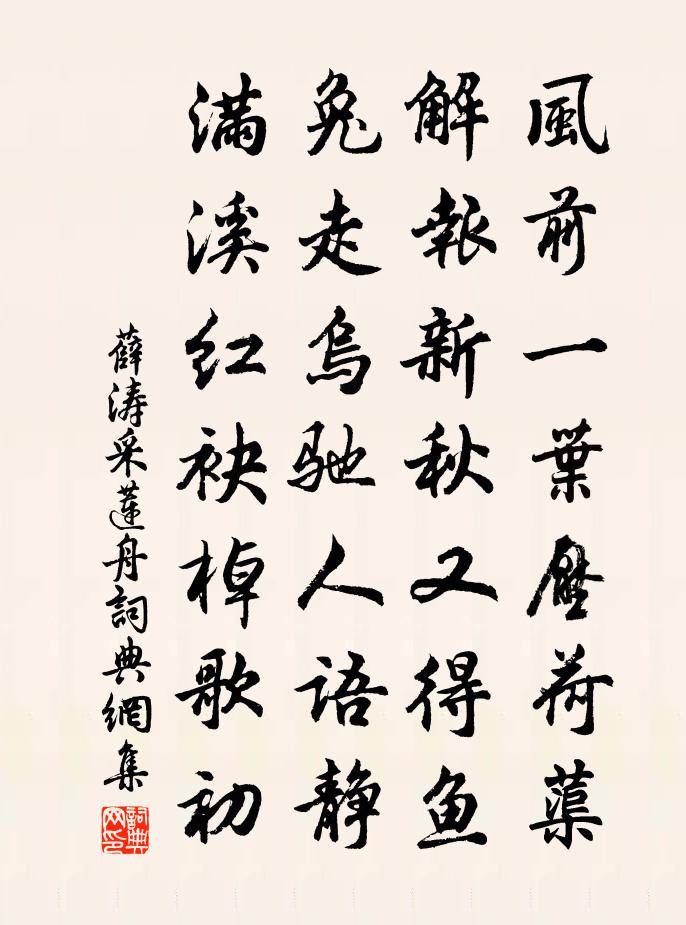 風前一葉壓荷蕖
解報新秋又得鱼
兔走烏馳人語静
滿溪红袂棹歌初
薛涛采蓮舟詞典網集
詞典网印